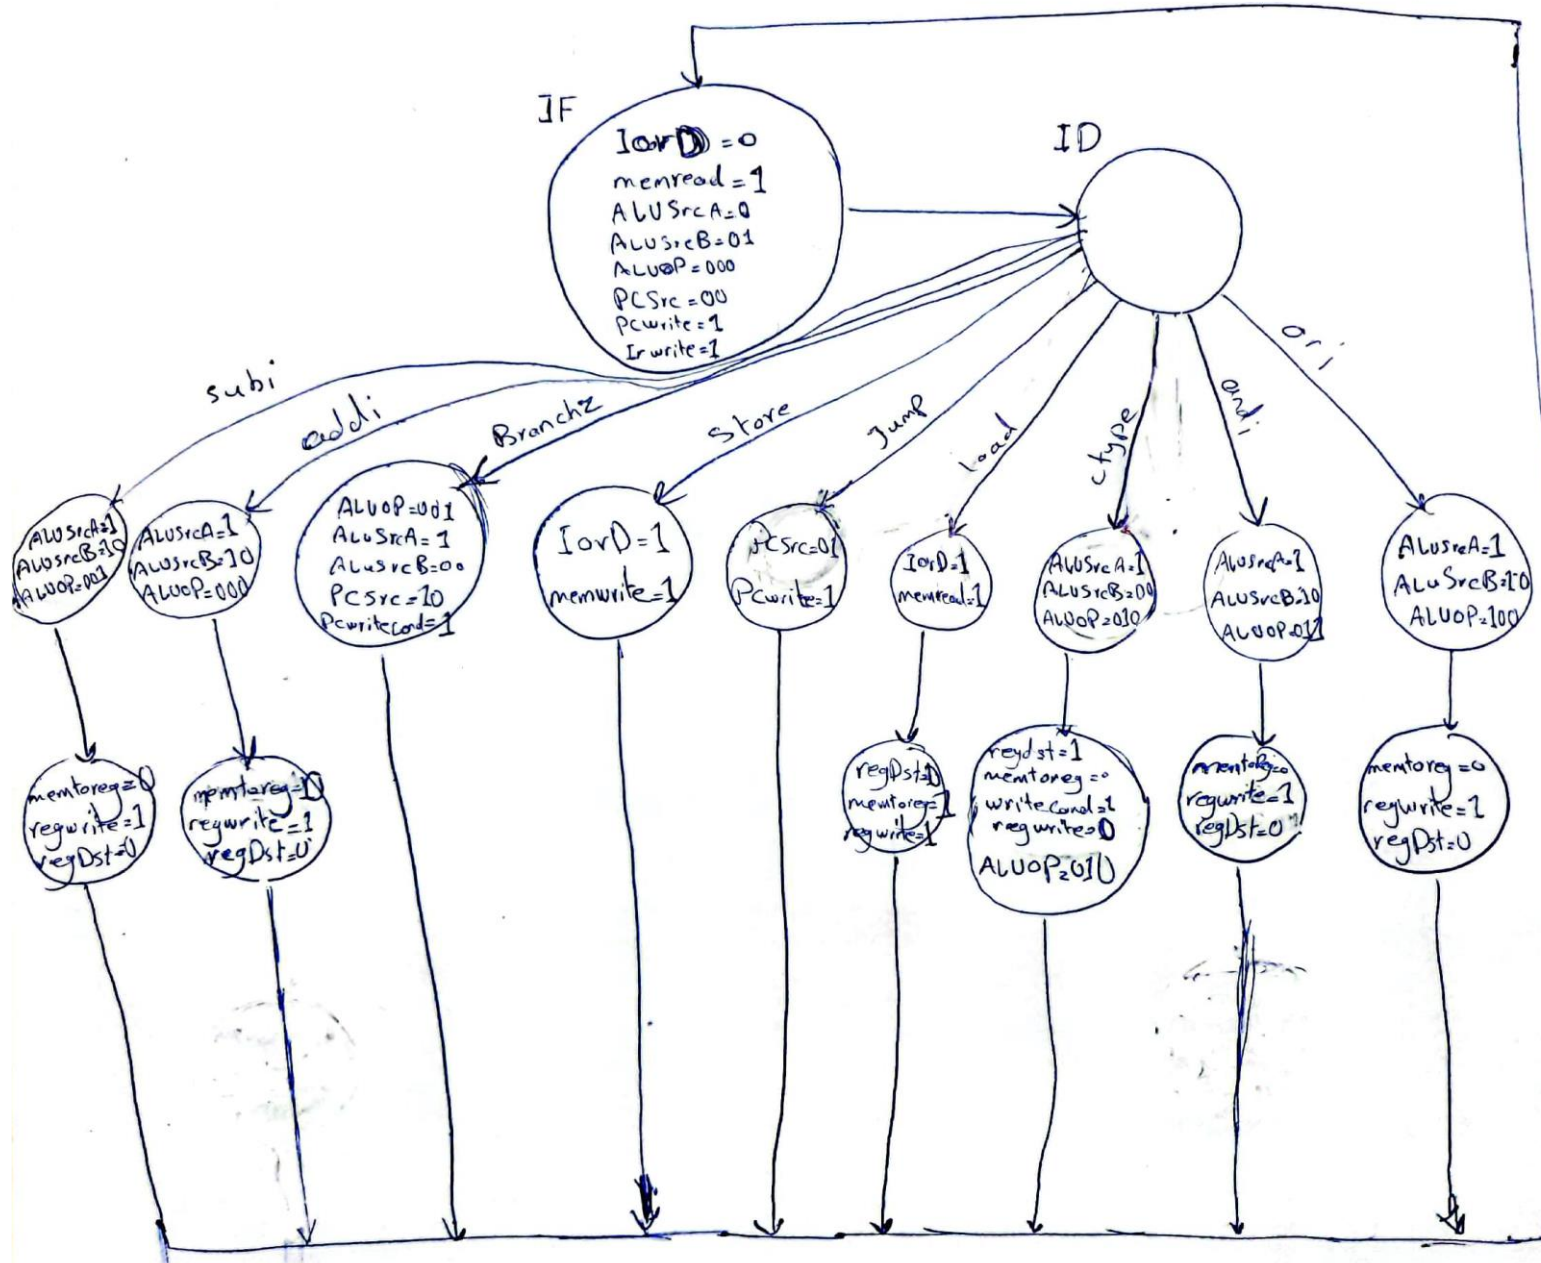 IF
IorD = 0
memread = 1
ALUSrcA=0
ALUSrcB=01
ALUOP=000
PCSrc=00
Pcwrite=1
Irwrite=1
ID
subi
addi
Branchz
Store
Jump
load
ctype
andi
ori
ALUSrcA=1
ALUSrcB=10
ALUOP=001
ALUSrcA=1
ALUSrcB=10
ALUOP=000
ALUOP=001
ALUSrcA=1
ALUSrcB=00
PCSrc=10
Pcwritecond=1
IorD=1
memwrite=1
PCSrc=01
Pcwrite=1
IorD=1
memread=1
ALUSrcA=1
ALUSrcB=00
ALUOP=010
ALUSrcA=1
ALUSrcB=10
ALUOP=011
ALUSrcA=1
ALUSrcB=10
ALUOP=100
memtoreg=0
regwrite=1
regDst=0
memtoreg=0
regwrite=1
regDst=0
regDst=0
memtoreg=1
regwrite=1
regdst=1
memtoreg=0
writecond=1
regwrite=0
ALUOP=010
memtoReg=0
regwrite=1
regDst=0
memtoreg=0
regwrite=1
regDst=0